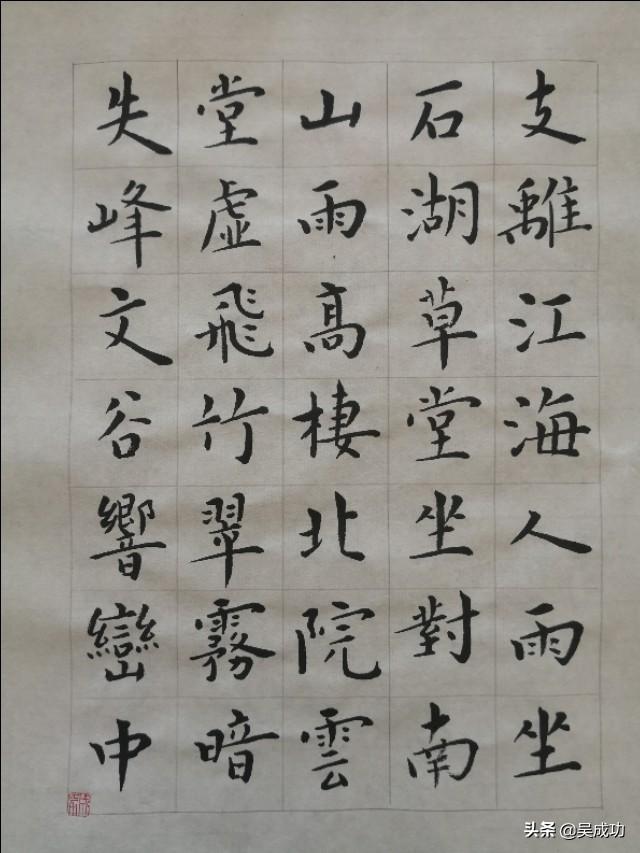 支離江海人雨坐
石湖草堂坐對南
山雨高棲北院雲
堂虛飛竹翠霧暗
失峰文谷響巒中
头条 @吴成功